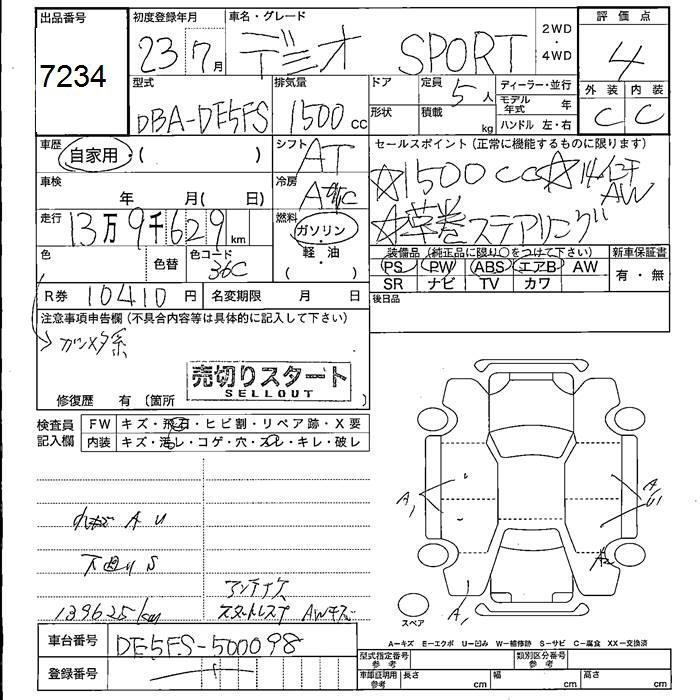 出品番号 初度登録年月 車名・グレード 2WD・4WD 評価点
7234 23 7月 デミオ SPORT 4
型式 排気量 ドア 定員 ディーラー・並行 外装 内装
DBA-DE5FS 1500 cc 5人 モデル年式 年 C C
形状 積載 kg ハンドル 左・右
車歴 自家用・( ) シフト AT セールスポイント(正常に機能するものに限ります)
車検 年 月( 日) 冷房 A/C ☆1500cc☆14インチAW
走行 13万9千629km 燃料 ガソリン・軽・油( ) ☆革巻ステアリング
色 色替 色コード 36C 装備品(純正品に限り○をつけて下さい) 新車保証書
PS PW ABS エアB AW 有・無
SR ナビ TV カワ
R券 10410円 名変期限 月 日 後日品
注意事項申告欄(不具合内容等は具体的に記入して下さい)
ガンメタ系
売切りスタート
SELLOUT
修復歴 有 〔箇所 〕
検査員記入欄 FW キズ・飛石・ヒビ割・リペア跡・X要
内装 キズ・汚レ・コゲ・穴・スレ・キレ・破レ
A U
下廻り S
139625km AWキズ
A1 A1 U1 A2 A1
スペア
A-キズ E-エクボ U-凹み W-補修跡 S-サビ C-腐食 XX-交換済
車台番号 DE5FS-500098
登録番号
型式指定番号 参考 類別区分番号 参考
車庫証明用 参考 長さ cm 幅 cm 高さ cm